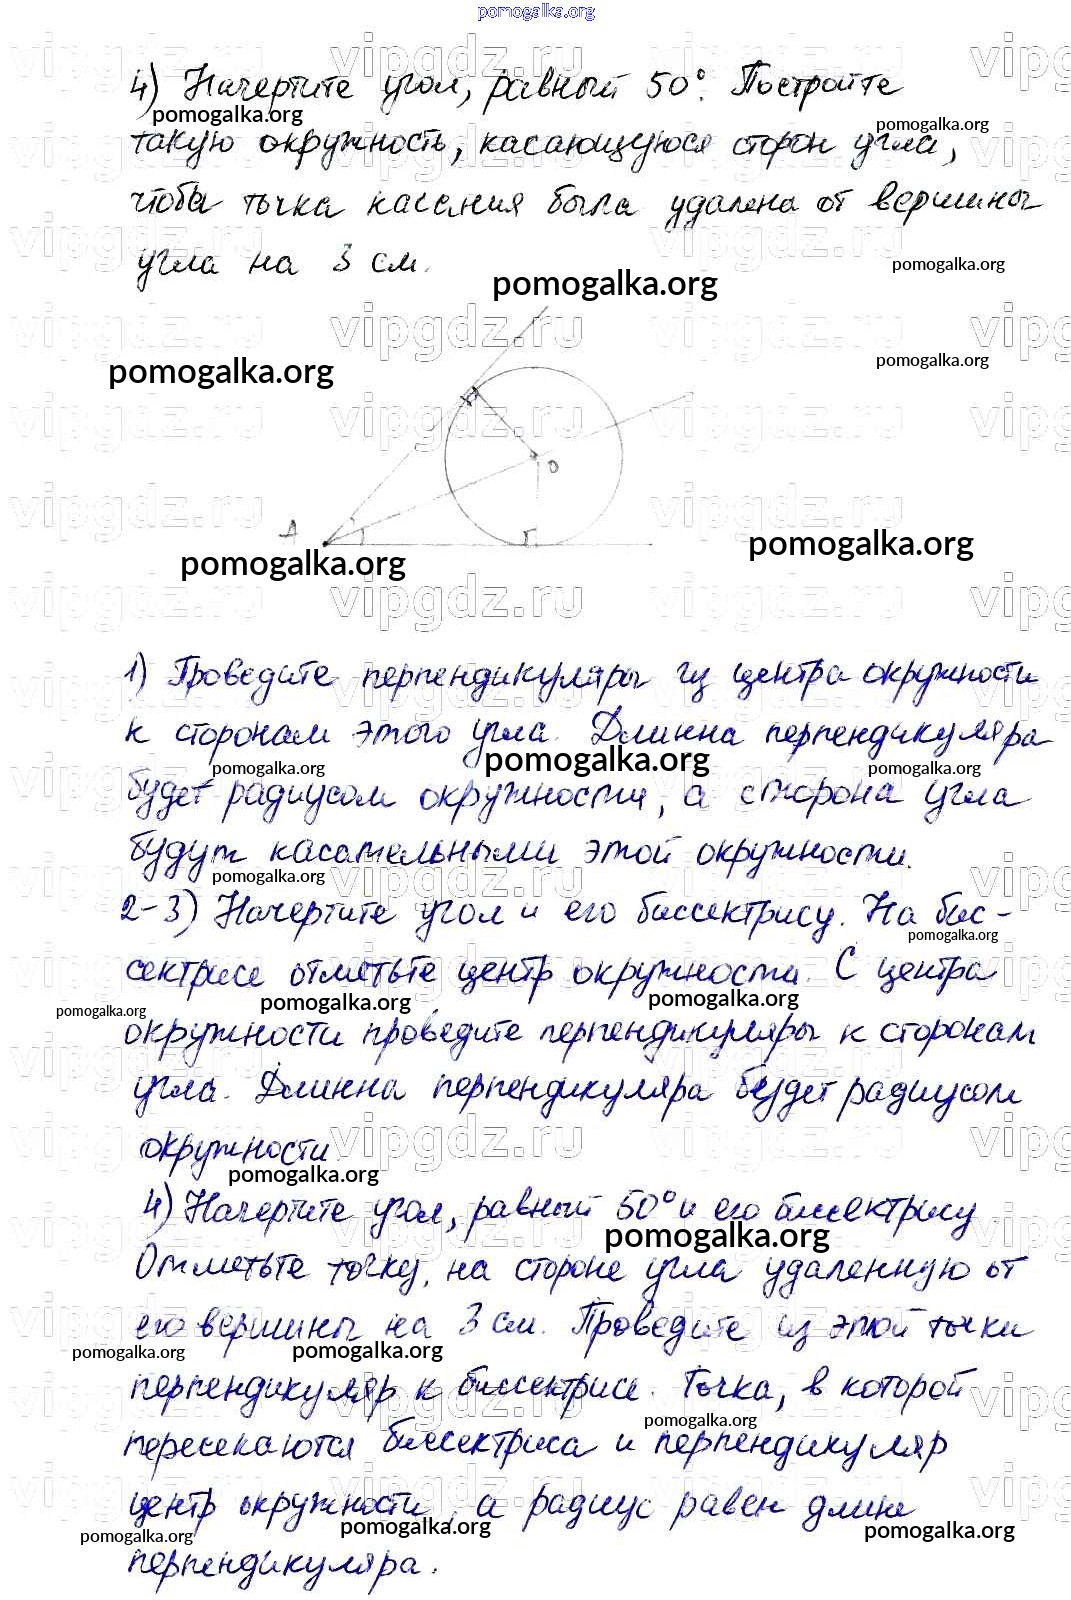 pomogalka.org
4) Начертите угол, равный 50°. Постройте
такую окружность, касающуюся сторон угла,
чтобы точка касания была удалена от вершины
угла на 3 см.
A
O
1) Проведите перпендикуляры из центра окружности
к сторонам этого угла. Длинна перпендикуляра
будет радиусом окружности, а сторона угла
будут касательными этой окружности.
2-3) Начертите угол и его биссектрису. На бис-
сектрисе отметьте центр окружности. С центра
окружности проведите перпендикуляры к сторонам
угла. Длинна перпендикуляра будет радиусом
окружности.
4) Начертите угол, равный 50° и его биссектрису.
Отметьте точку, на стороне угла удаленную от
его вершины на 3 см. Проведите из этой точки
перпендикуляр к биссектрисе. Точка, в которой
пересекаются биссектриса и перпендикуляр
центр окружности, а радиус равен длине
перпендикуляра.